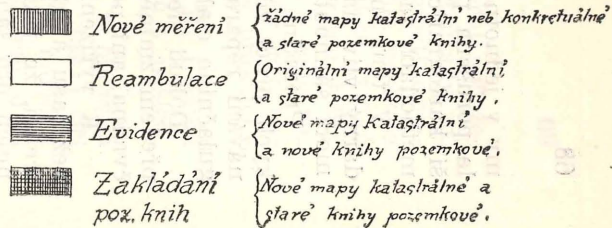 Nové měření
žádné mapy katastrální neb konkretuálné
a staré pozemkové knihy.
Reambulace
Originální mapy katastrální
a staré pozemkové knihy.
Evidence
Nové mapy katastrální
a nové knihy pozemkové.
Zakládání
poz. knih
Nové mapy katastrálné a
staré knihy pozemkové.